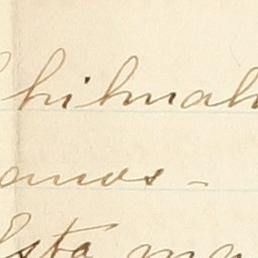 Chihuah
anos -
Esta ma